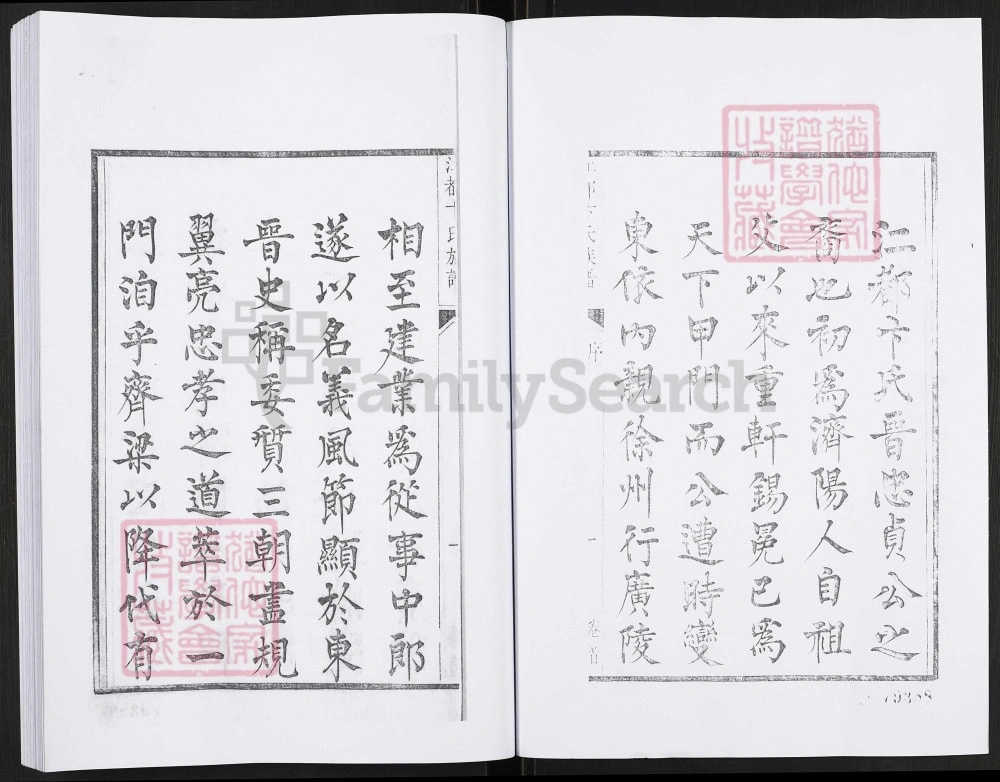 江都卞氏晉忠貞公之
裔也初為濟陽人自祖
父以來重軒錫冕已為
天下甲門而公遭時變
東依內親徐州行廣陵
序
一
卷首
江都卞氏族譜
一
相至建業為從事中郎
遂以名義風節顯於東
晉史稱委質三朝盡規
翼亮忠孝之道萃於一
門洎乎齊梁以降代有
FamilySearch